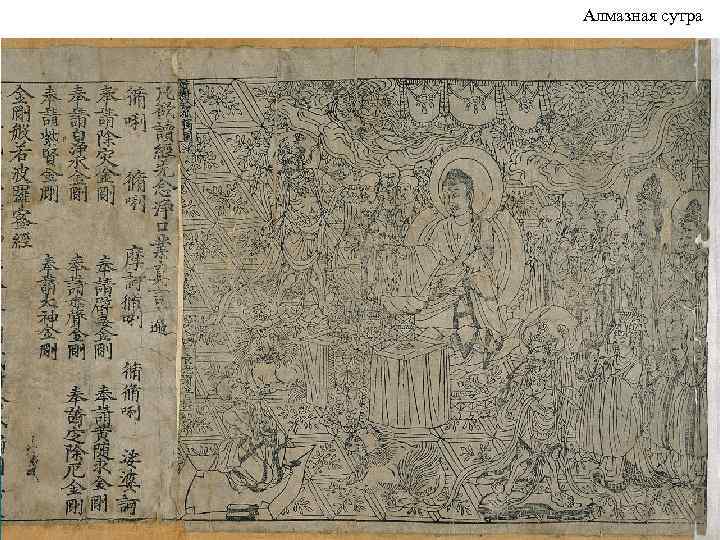 Алмазная сутра
凡欲讀經先念淨口業真言一遍
脩唎 脩唎 摩訶脩唎 脩脩唎 娑婆訶
奉請除灾金剛 奉請辟毒金剛 奉請黃隨求金剛
奉請白淨水金剛 奉請赤聲金剛 奉請定除厄金剛
奉請紫賢金剛 奉請大神金剛
金剛般若波羅蜜經